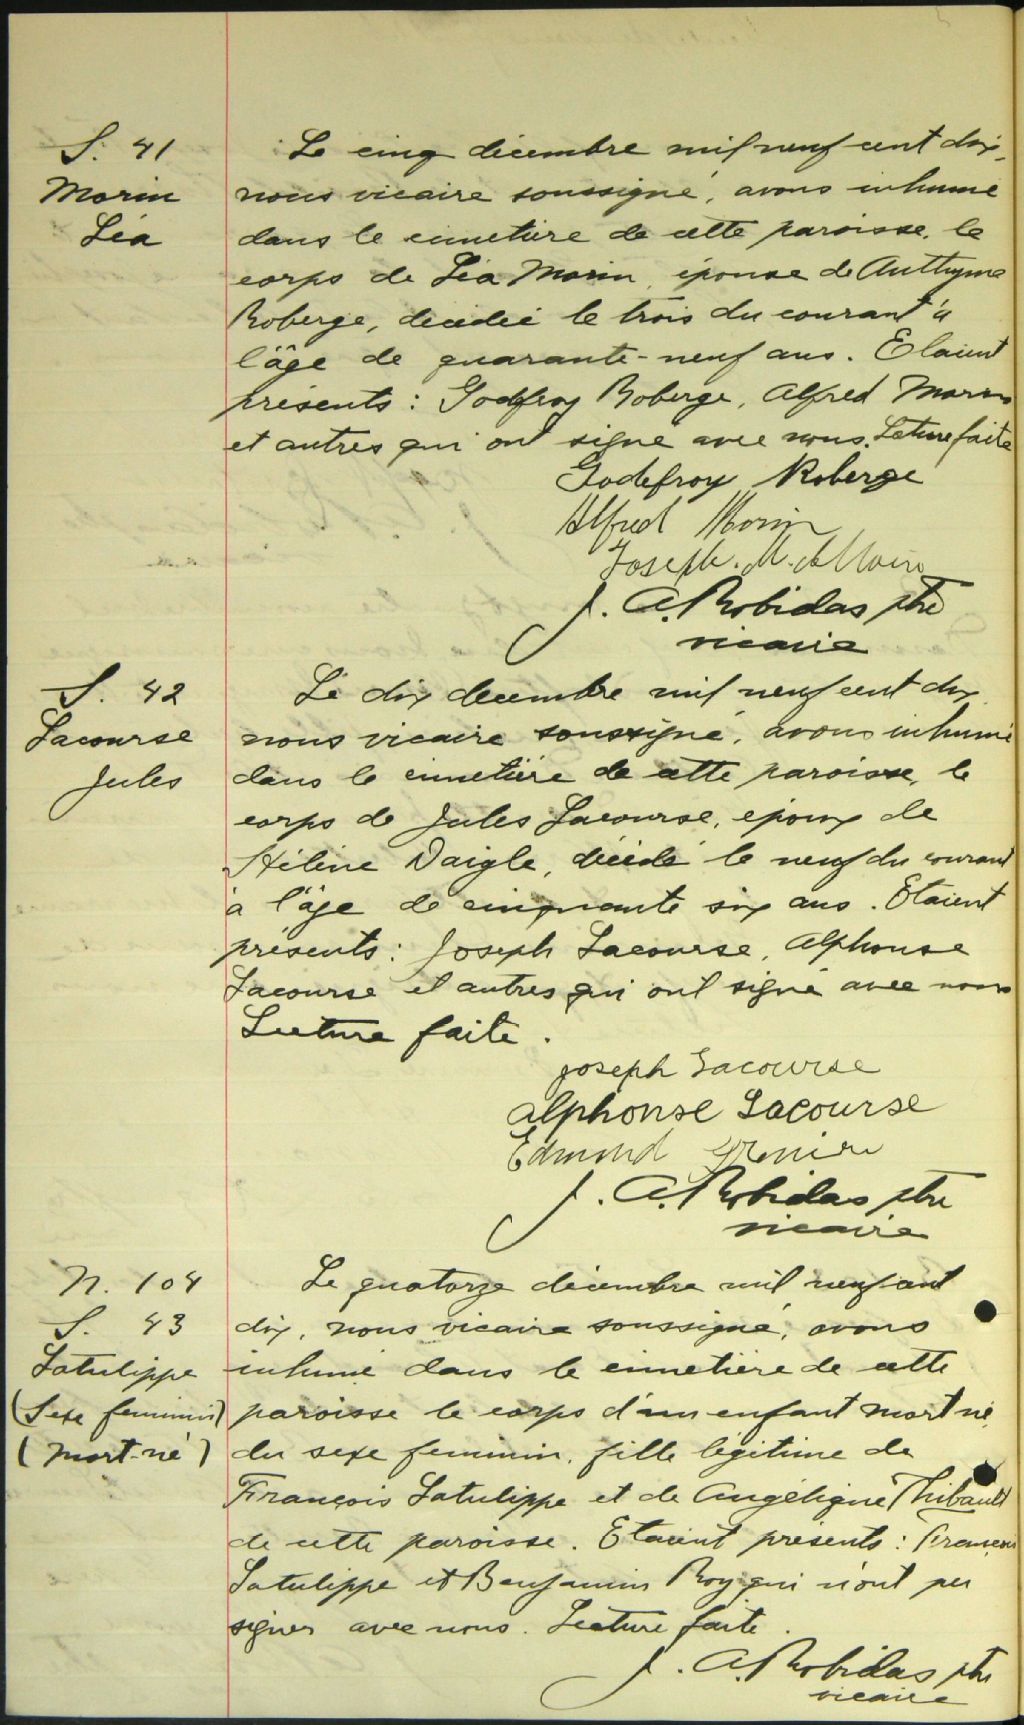 S. 41
Morin
Léa
Le cinq décembre mil neuf cent dix,
nous vicaire soussigné, avons inhumé
dans le cimetière de cette paroisse, le
corps de Léa Morin, épouse de Anthyme
Roberge, décédée le trois du courant à
l'âge de quarante-neuf ans. Etaient
présents: Godfroy Roberge, Alfred Morin
et autres qui ont signé avec nous. Lecture faite
Godefroy Roberge
Alfred Morin
Joseph. M.
J. A. Robidas ptre
vicaire
S. 42
Lacourse
Jules
Le dix décembre mil neuf cent dix
nous vicaire soussigné, avons inhumé
dans le cimetière de cette paroisse, le
corps de Jules Lacourse, époux de
Hélène Daigle, décédé le neuf du courant
à l'âge de cinquante six ans. Etaient
présents: Joseph Lacourse, Alphonse
Lacourse et autres qui ont signé avec nous
Lecture faite.
Joseph Lacourse
Alphonse Lacourse
Edmond Grenier
J. A. Robidas ptre
vicaire
N. 104
S. 43
Latulippe
(Sexe feminin)
(Mort-né)
Le quatorze décembre mil neuf cent
dix, nous vicaire soussigné, avons
inhumé dans le cimetière de cette
paroisse le corps d'un enfant mort né,
du sexe feminin, fille légitime de
François Latulippe et de Angélique Thibault
de cette paroisse. Etaient présents: François
Latulippe et Benjamin Roy qui n'ont pu
signer avec nous. Lecture faite.
J. A. Robidas ptre
vicaire